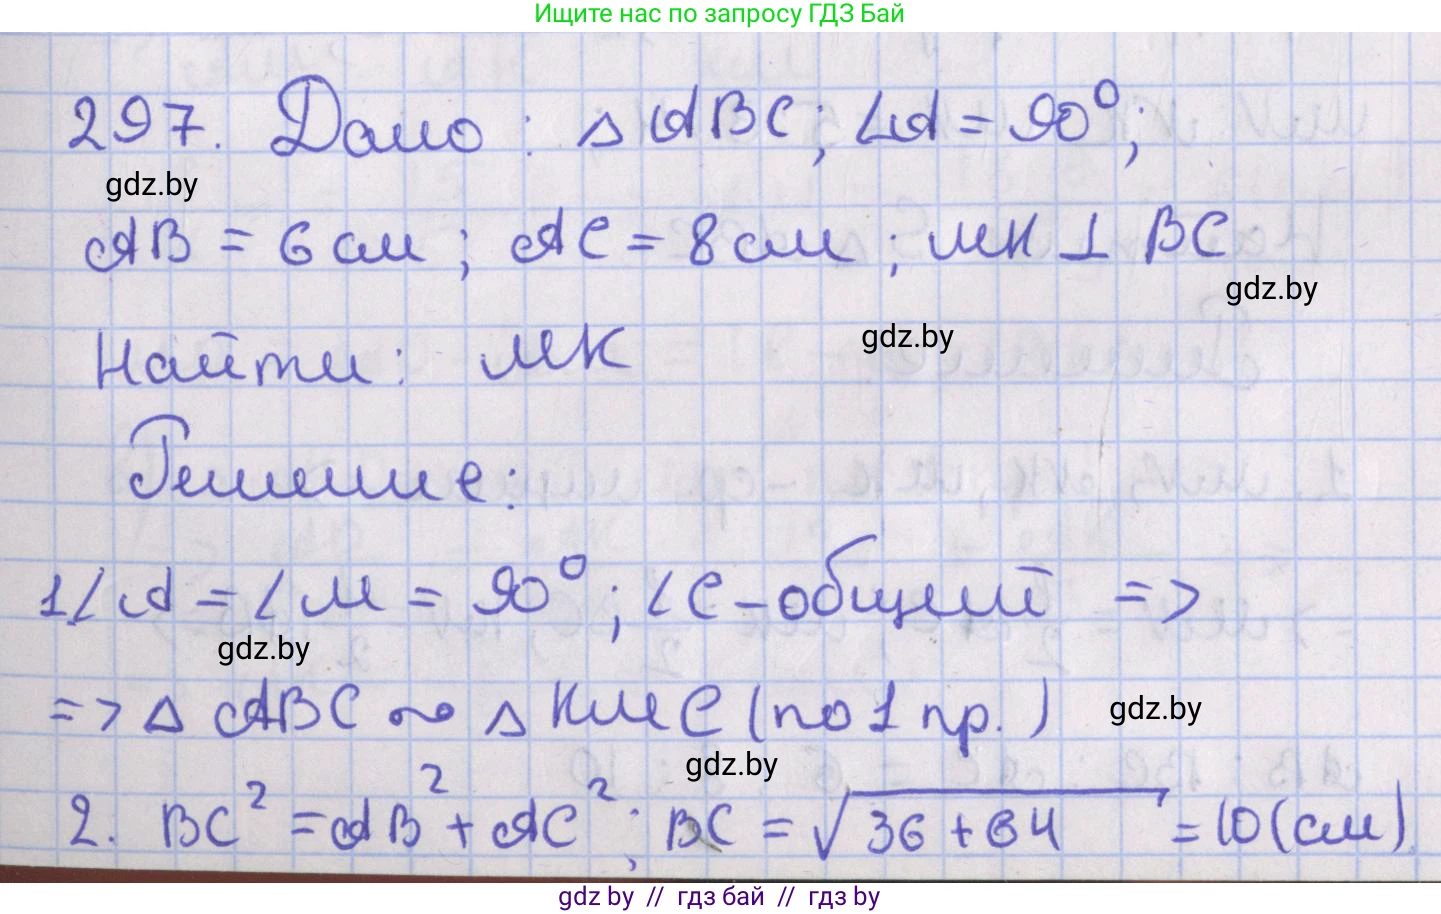 Ищите нас по запросу ГДЗ Бай
297. Дано: △ ABC; ∠A = 90°;
gdz.by
AB = 6 см; AC = 8 см; MK ⊥ BC
gdz.by
Найти: MK
gdz.by
Решение:
1. ∠A = ∠M = 90°; ∠C - общий =>
gdz.by
=> △ ABC ∾ △ KMC (по 1 пр.)
gdz.by
gdz.by
2. BC² = AB² + AC²; BC = √36 + 64 = 10 (см)
gdz.by // гдз бай // гдз by